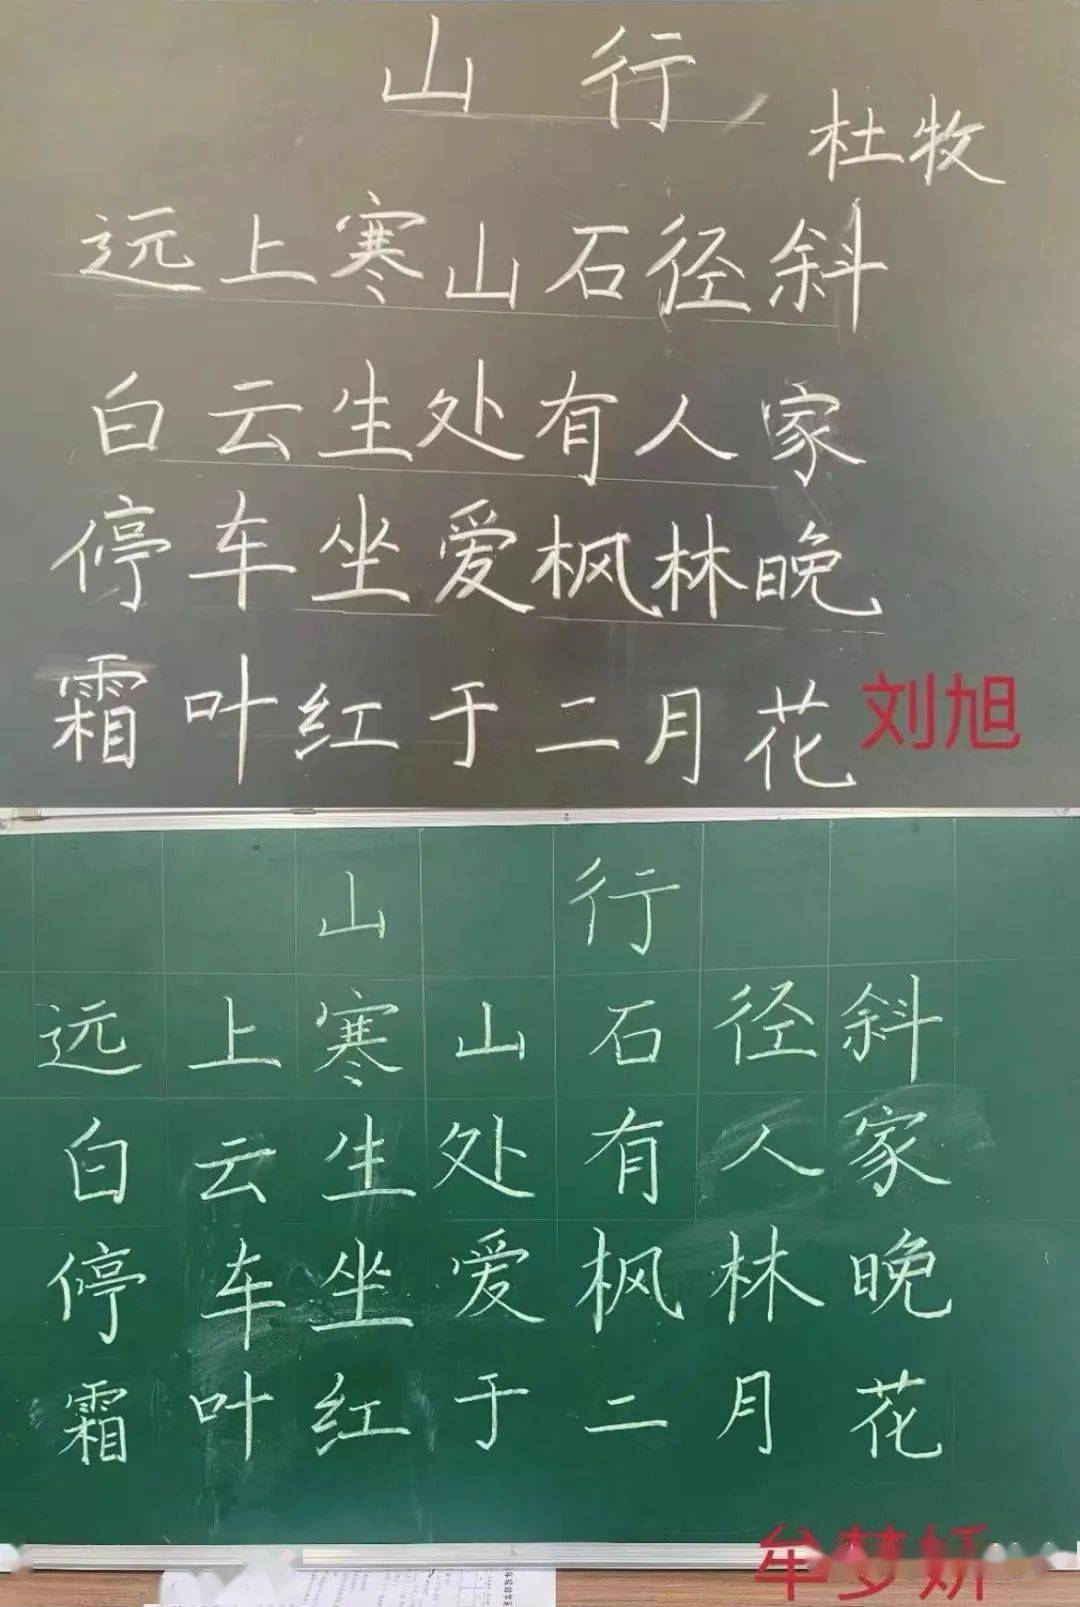 山行
杜牧
远上寒山石径斜
白云生处有人家
停车坐爱枫林晚
霜叶红于二月花
刘旭
山行
远上寒山石径斜
白云生处有人家
停车坐爱枫林晚
霜叶红于二月花
牟梦妍